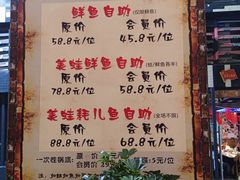 鲜鱼自助(仅限鲜鱼)
原价 会员价
58.8元/位 45.8元/位
美蛙鲜鱼自助(蛙/鲜鱼各半)
原价 会员价
78.8元/位 58.8元/位
美蛙耗儿鱼自助(全场不限)
原价 会员价
88.8元/位 68.8元/位
一次性锅底: 原 价
会员价 5元/位